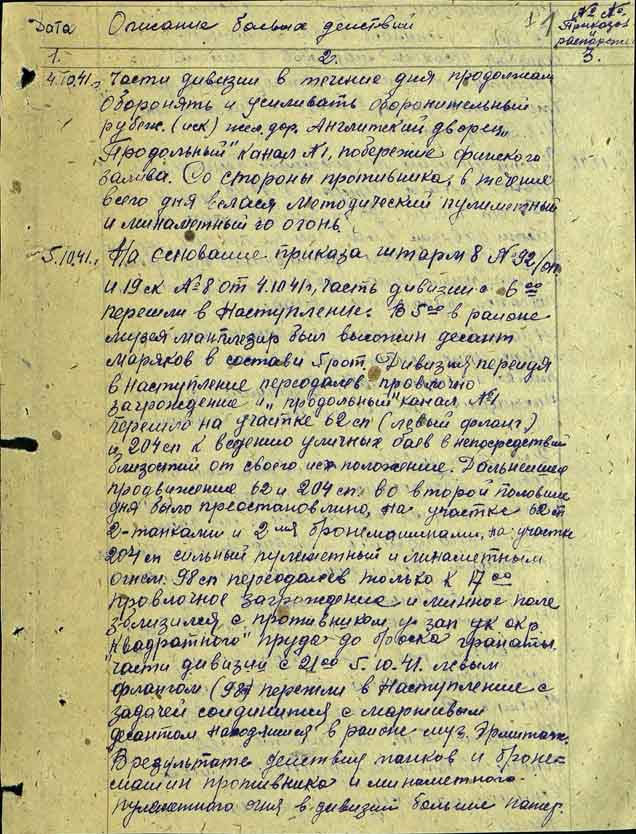 Дата Описание боевых действий 1 №№ Приказов распоряже
1. 2. 3.
4.10.41г. Части дивизии в течение дня продолжали
оборонять и усиливать оборонительный
рубеж. (иск) жел. дор. Английский дворец,
"Продольный" канал №1, побережие финского
залива. Со стороны противника, в течения
всего дня велася методический пулиметный
и минаметный огонь.
5.10.41г. На основание приказа штарм 8 №92/оп
и 19 ск №8 от 4.10.41г, часть дивизии с 6 00
перешли в наступление. В 5 00 в районе
музея манплезир был высожин десант
маряков в состави 5 рот. Дивизия перейдя
в наступление переодалев провлочно
заграждение и "продольный" канал №1
перешло на участке 62 сп (левый фланг)
и 204 сп к ведению уличных баев в непосредствий
близостий от своего исх положение. Дальнейшее
продвижение 62 и 204 сп во второй половине
дня было преостановлино, на участке 62 сп
2-танками и 2мя бронемашинами, на участке
204 сп сильный пулеметный и минаметным
огнем. 98 сп переодалев только к 17 00
провлочное заграждение и минное поле
зблизился с противником у зап окр
"квадратного" пруда до броска гранаты.
Части дивизии с 21 00 5.10.41. левым
флангом (98) перешли в наступление с
задачей соединится с
десантом находяшися в районе муз. Эрмитаж.
В результате действия танков и броне-
машин противника и минаметного-
пулеметного огня в дивизий большие потер.